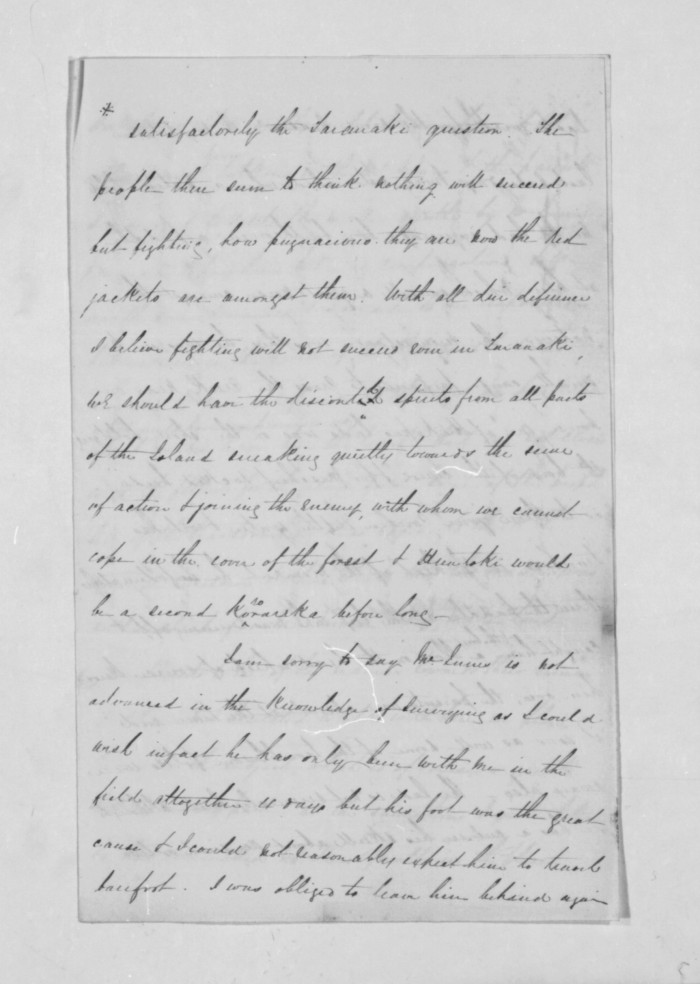 *
satisfactorily the Taranaki question. The
people there seem to think nothing will succeed
but fighting, how pugnacious they are now the red
jackets are amongst them. With all due deference
I believe fighting will not succeed even in Taranaki,
we should have the discontd spirits from all parts
of the Island sneaking quietly towards the scene
of action & joining the enemy, with whom we cannot
cope in the cover of the forest & would
be a second before long -
I am sorry to say Mr is not
advanced in the knowledge of Surveying as I could
wish infact he has only been with me in the
field altogether days but his foot was the great
cause & I could not reasonably expect him to travel
barefoot. I was obliged to leave him behind again